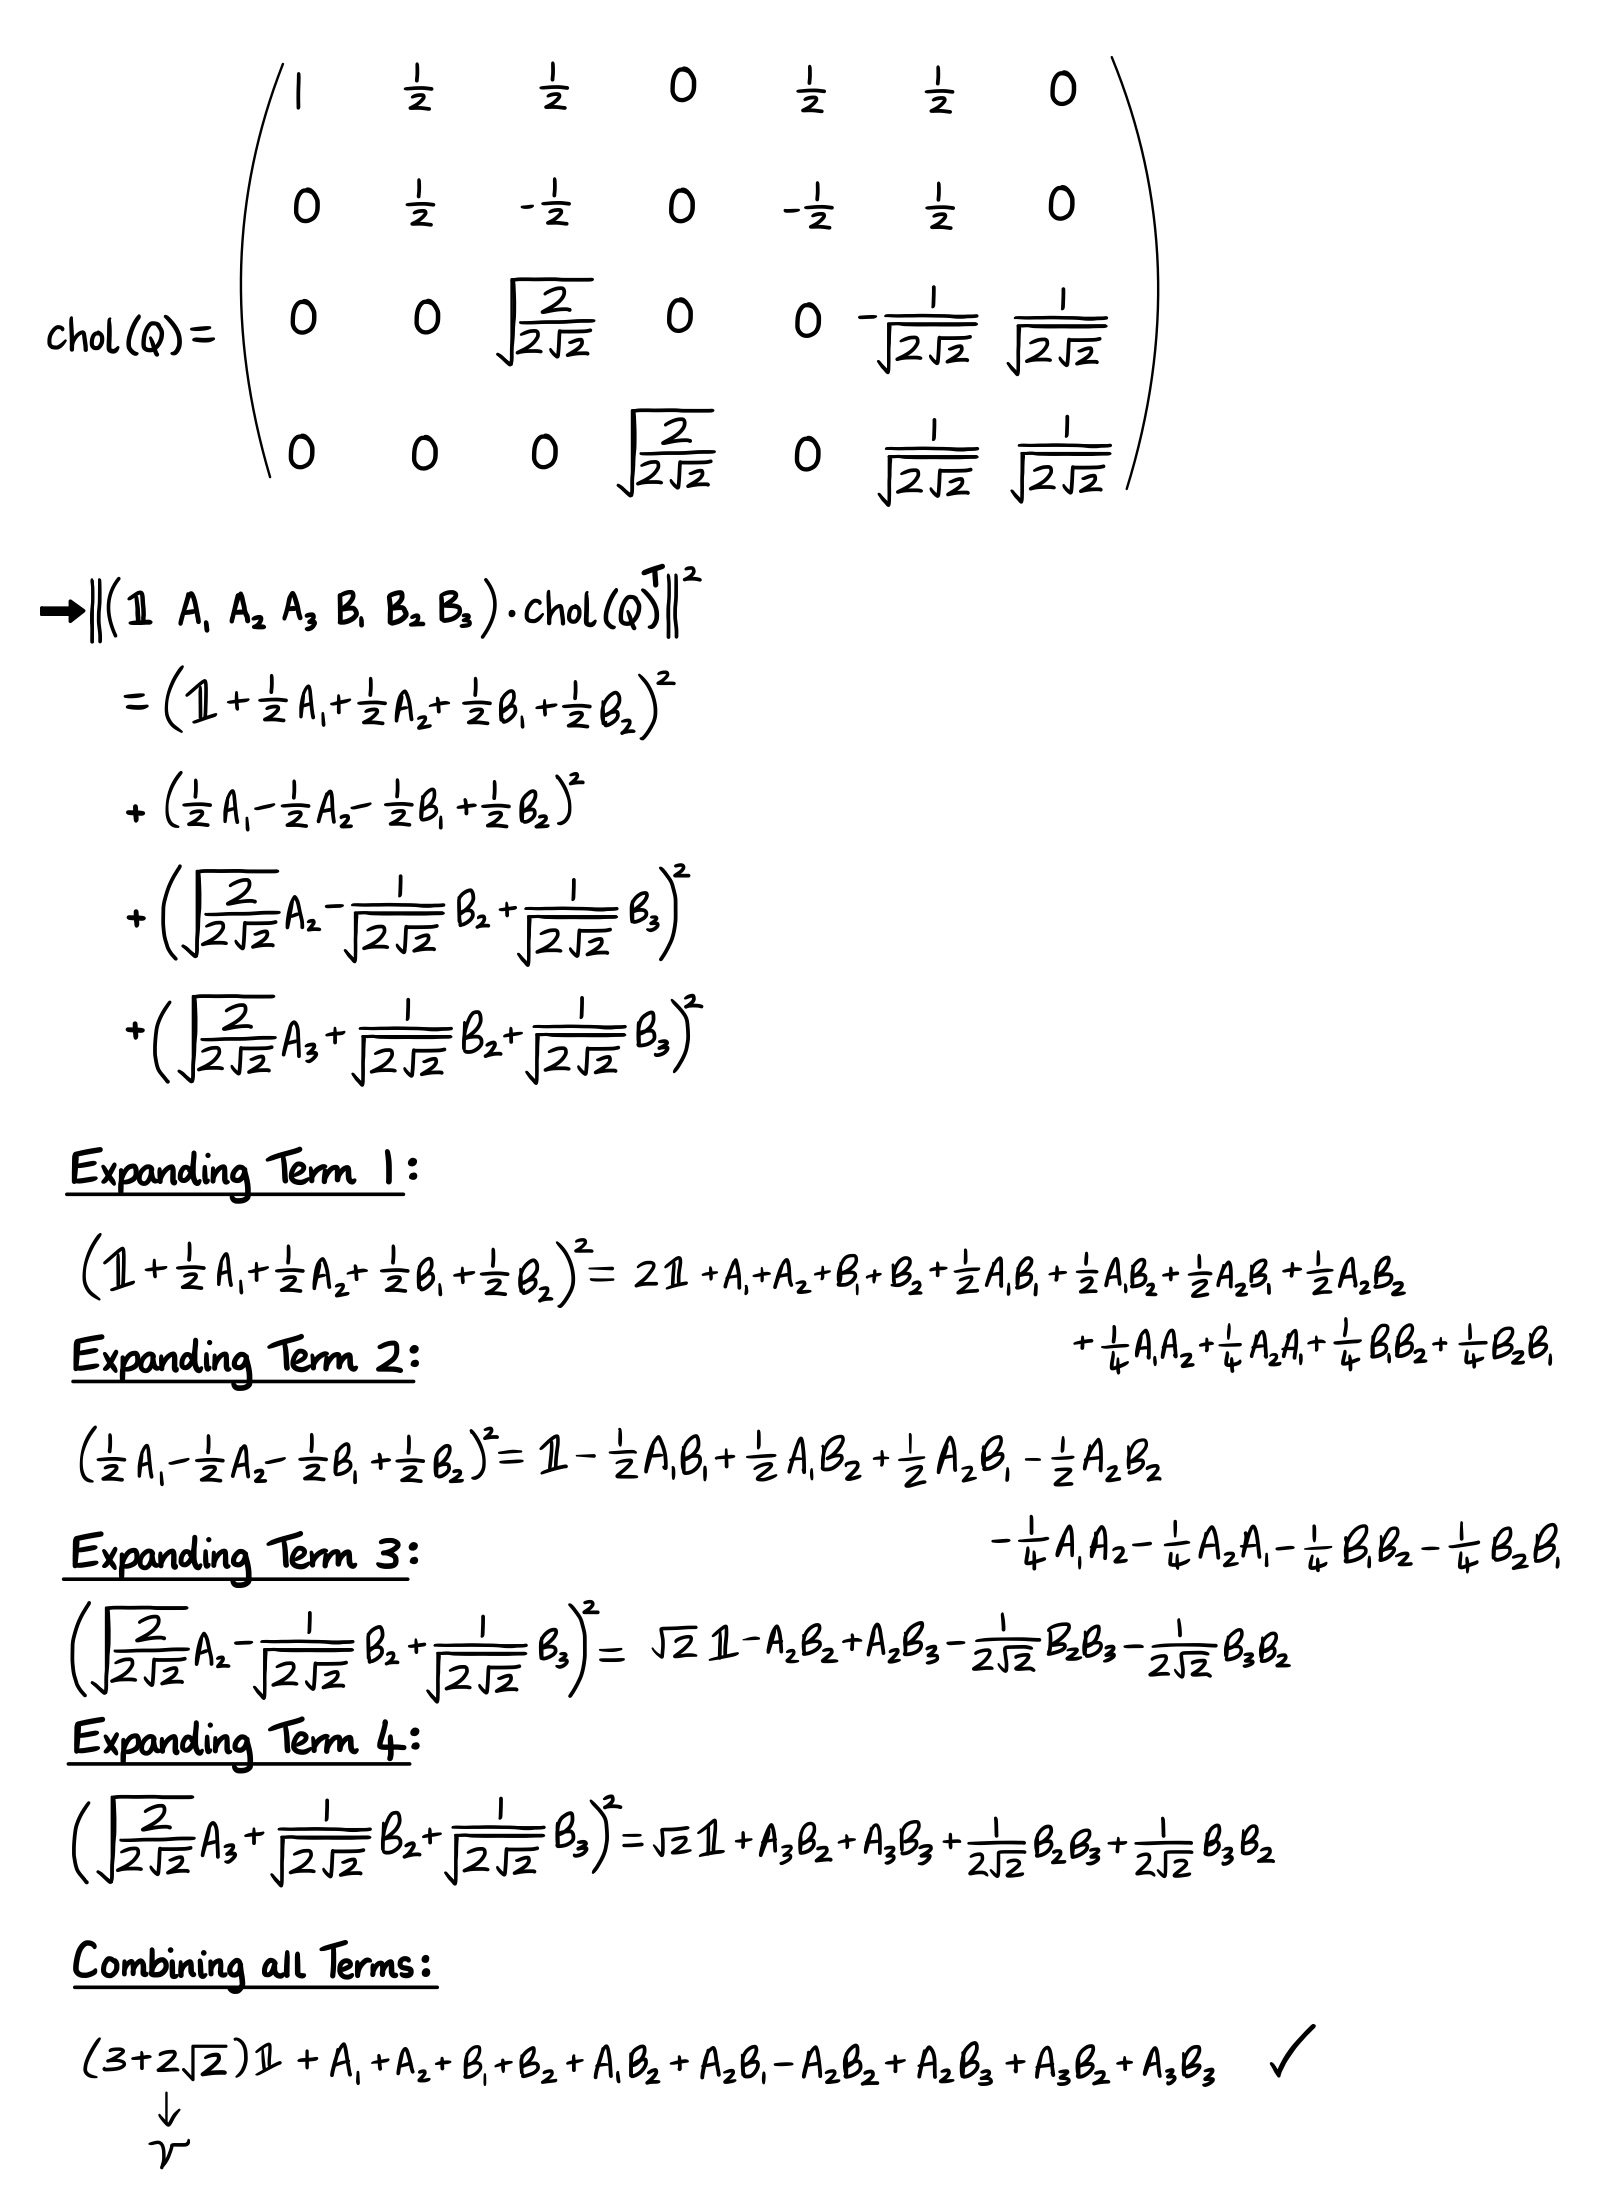 chol(Q) = ( 1 1/2 1/2 0 1/2 1/2 0
0 1/2 -1/2 0 -1/2 1/2 0
0 0 √(2/(2√2)) 0 0 -1/√(2√2) 1/√(2√2)
0 0 0 √(2/(2√2)) 0 1/√(2√2) 1/√(2√2) )
→ ||(𝟙 A₁ A₂ A₃ B₁ B₂ B₃) · chol(Q)ᵀ||²
= (𝟙 + 1/2 A₁ + 1/2 A₂ + 1/2 B₁ + 1/2 B₂)²
+ (1/2 A₁ - 1/2 A₂ - 1/2 B₁ + 1/2 B₂)²
+ (√(2/(2√2)) A₂ - 1/√(2√2) B₂ + 1/√(2√2) B₃)²
+ (√(2/(2√2)) A₃ + 1/√(2√2) B₂ + 1/√(2√2) B₃)²
Expanding Term 1:
(𝟙 + 1/2 A₁ + 1/2 A₂ + 1/2 B₁ + 1/2 B₂)² = 2𝟙 + A₁ + A₂ + B₁ + B₂ + 1/2 A₁B₁ + 1/2 A₁B₂ + 1/2 A₂B₁ + 1/2 A₂B₂
+ 1/4 A₁A₂ + 1/4 A₂A₁ + 1/4 B₁B₂ + 1/4 B₂B₁
Expanding Term 2:
(1/2 A₁ - 1/2 A₂ - 1/2 B₁ + 1/2 B₂)² = 𝟙 - 1/2 A₁B₁ + 1/2 A₁B₂ + 1/2 A₂B₁ - 1/2 A₂B₂
- 1/4 A₁A₂ - 1/4 A₂A₁ - 1/4 B₁B₂ - 1/4 B₂B₁
Expanding Term 3:
(√(2/(2√2)) A₂ - 1/√(2√2) B₂ + 1/√(2√2) B₃)² = √2 𝟙 - A₂B₂ + A₂B₃ - 1/(2√2) B₂B₃ - 1/(2√2) B₃B₂
Expanding Term 4:
(√(2/(2√2)) A₃ + 1/√(2√2) B₂ + 1/√(2√2) B₃)² = √2 𝟙 + A₃B₂ + A₃B₃ + 1/(2√2) B₂B₃ + 1/(2√2) B₃B₂
Combining all Terms:
(3+2√2)𝟙 + A₁ + A₂ + B₁ + B₂ + A₁B₂ + A₂B₁ - A₂B₂ + A₂B₃ + A₃B₂ + A₃B₃ ✓
↓